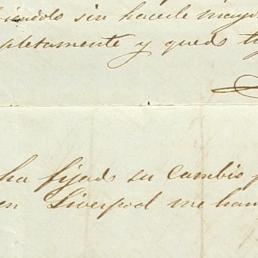 sin hacerle
pletamente y quedo
ha fijado su Cambio
en Liverpool me han